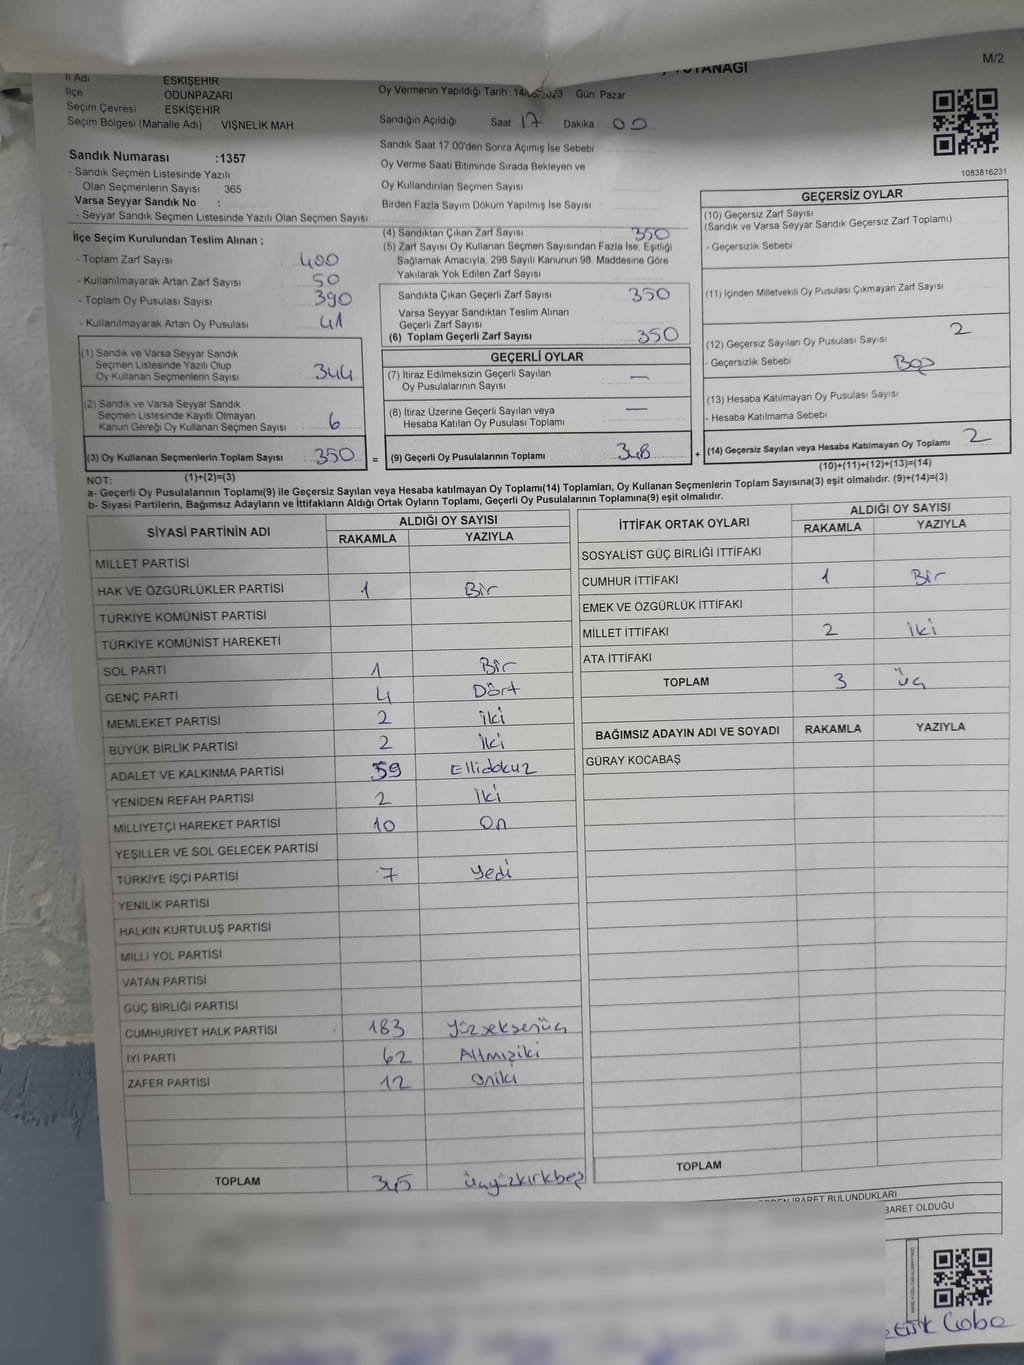 TUTANAĞI
M/2
İl Adı ESKİŞEHİR
İlçe ODUNPAZARI
Seçim Çevresi : ESKİŞEHİR
Seçim Bölgesi (Mahalle Adı) : VİŞNELİK MAH.
Oy Vermenin Yapıldığı Tarih : 2023 Gün: Pazar
Sandığın Açıldığı Saat 17 Dakika : 00
Sandık Saat 17:00'den Sonra Açımış İse Sebebi
Oy Verme Saati Bitiminde Sırada Bekleyen ve
Oy Kullandırılan Seçmen Sayısı
Birden Fazla Sayım Döküm Yapılmış İse Sayısı
Sandık Numarası :1357
- Sandık Seçmen Listesinde Yazılı
Olan Seçmenlerin Sayısı : 365
Varsa Seyyar Sandık No :
- Seyyar Sandık Seçmen Listesinde Yazılı Olan Seçmen Sayısı
1083816231
İlçe Seçim Kurulundan Teslim Alınan ;
- Toplam Zarf Sayısı : 400
- Kullanılmayarak Artan Zarf Sayısı : 50
- Toplam Oy Pusulası Sayısı : 390
- Kullanılmayarak Artan Oy Pusulası : 41
(1) Sandık ve Varsa Seyyar Sandık
Seçmen Listesinde Yazılı Olup
Oy Kullanan Seçmenlerin Sayısı : 344
(2) Sandık ve Varsa Seyyar Sandık
Seçmen Listesinde Kayıtlı Olmayan
Kanun Gereği Oy Kullanan Seçmen Sayısı : 6
(3) Oy Kullanan Seçmenlerin Toplam Sayısı : 350 =
(4) Sandıktan Çıkan Zarf Sayısı : 350
(5) Zarf Sayısı Oy Kullanan Seçmen Sayısından Fazla İse, Eşitliği
Sağlamak Amacıyla, 298 Sayılı Kanunun 98. Maddesine Göre
Yakılarak Yok Edilen Zarf Sayısı
Sandıkta Çıkan Geçerli Zarf Sayısı : 350
Varsa Seyyar Sandıktan Teslim Alınan
Geçerli Zarf Sayısı
(6) Toplam Geçerli Zarf Sayısı : 350
GEÇERLİ OYLAR
(7) İtiraz Edilmeksizin Geçerli Sayılan
Oy Pusulalarının Sayısı : —
(8) İtiraz Üzerine Geçerli Sayılan veya
Hesaba Katılan Oy Pusulası Toplamı : —
(9) Geçerli Oy Pusulalarının Toplamı : 348 +
GEÇERSİZ OYLAR
(10) Geçersiz Zarf Sayısı
(Sandık ve Varsa Seyyar Sandık Geçersiz Zarf Toplamı)
- Geçersizlik Sebebi
(11) İçinden Milletvekili Oy Pusulası Çıkmayan Zarf Sayısı
(12) Geçersiz Sayılan Oy Pusulası Sayısı 2
- Geçersizlik Sebebi Boş
(13) Hesaba Katılmayan Oy Pusulası Sayısı
- Hesaba Katılmama Sebebi
(14) Geçersiz Sayılan veya Hesaba Katılmayan Oy Toplamı 2
NOT: (1)+(2)=(3) (10)+(11)+(12)+(13)=(14)
a- Geçerli Oy Pusulalarının Toplamı(9) ile Geçersiz Sayılan veya Hesaba katılmayan Oy Toplamı(14) Toplamları, Oy Kullanan Seçmenlerin Toplam Sayısına(3) eşit olmalıdır. (9)+(14)=(3)
b- Siyasi Partilerin, Bağımsız Adayların ve İttifakların Aldığı Ortak Oyların Toplamı, Geçerli Oy Pusulalarının Toplamına(9) eşit olmalıdır.
SİYASİ PARTİNİN ADI ALDIĞI OY SAYISI
RAKAMLA YAZIYLA
MİLLET PARTİSİ
HAK VE ÖZGÜRLÜKLER PARTİSİ 1 Bir
TÜRKİYE KOMÜNİST PARTİSİ
TÜRKİYE KOMÜNİST HAREKETİ
SOL PARTİ 1 Bir
GENÇ PARTİ 4 Dört
MEMLEKET PARTİSİ 2 İki
BÜYÜK BİRLİK PARTİSİ 2 İki
ADALET VE KALKINMA PARTİSİ 59 Ellidokuz
YENİDEN REFAH PARTİSİ 2 İki
MİLLİYETÇİ HAREKET PARTİSİ 10 On
YEŞİLLER VE SOL GELECEK PARTİSİ
TÜRKİYE İŞÇİ PARTİSİ 7 Yedi
YENİLİK PARTİSİ
HALKIN KURTULUŞ PARTİSİ
MİLLİ YOL PARTİSİ
VATAN PARTİSİ
GÜÇ BİRLİĞİ PARTİSİ
CUMHURİYET HALK PARTİSİ 183 Yüzseksenüç
İYİ PARTİ 62 Altmışiki
ZAFER PARTİSİ 12 Oniki
TOPLAM 345 Üçyüzkırkbeş
İTTİFAK ORTAK OYLARI ALDIĞI OY SAYISI
RAKAMLA YAZIYLA
SOSYALİST GÜÇ BİRLİĞİ İTTİFAKI
CUMHUR İTTİFAKI 1 Bir
EMEK VE ÖZGÜRLÜK İTTİFAKI
MİLLET İTTİFAKI 2 İki
ATA İTTİFAKI
TOPLAM 3 Üç
BAĞIMSIZ ADAYIN ADI VE SOYADI RAKAMLA YAZIYLA
GÜRAY KOCABAŞ
TOPLAM
İBARET BULUNDUKLARI
İBARET OLDUĞU